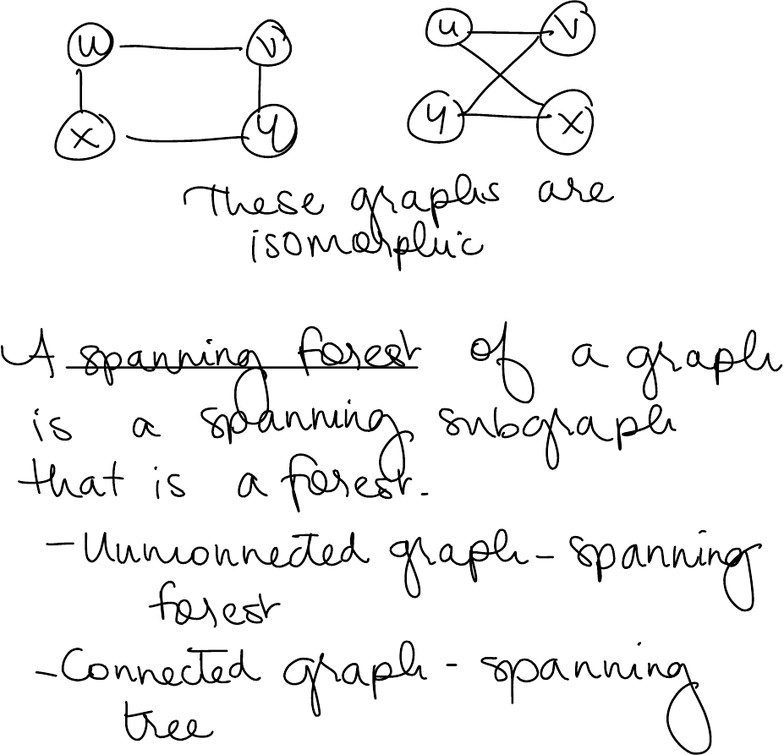 u v u v
x y y x
These graphs are
isomorphic
A spanning forest of a graph
is a spanning subgraph
that is a forest.
- Unnonnected graph - spanning
forest
- Connected graph - spanning
tree